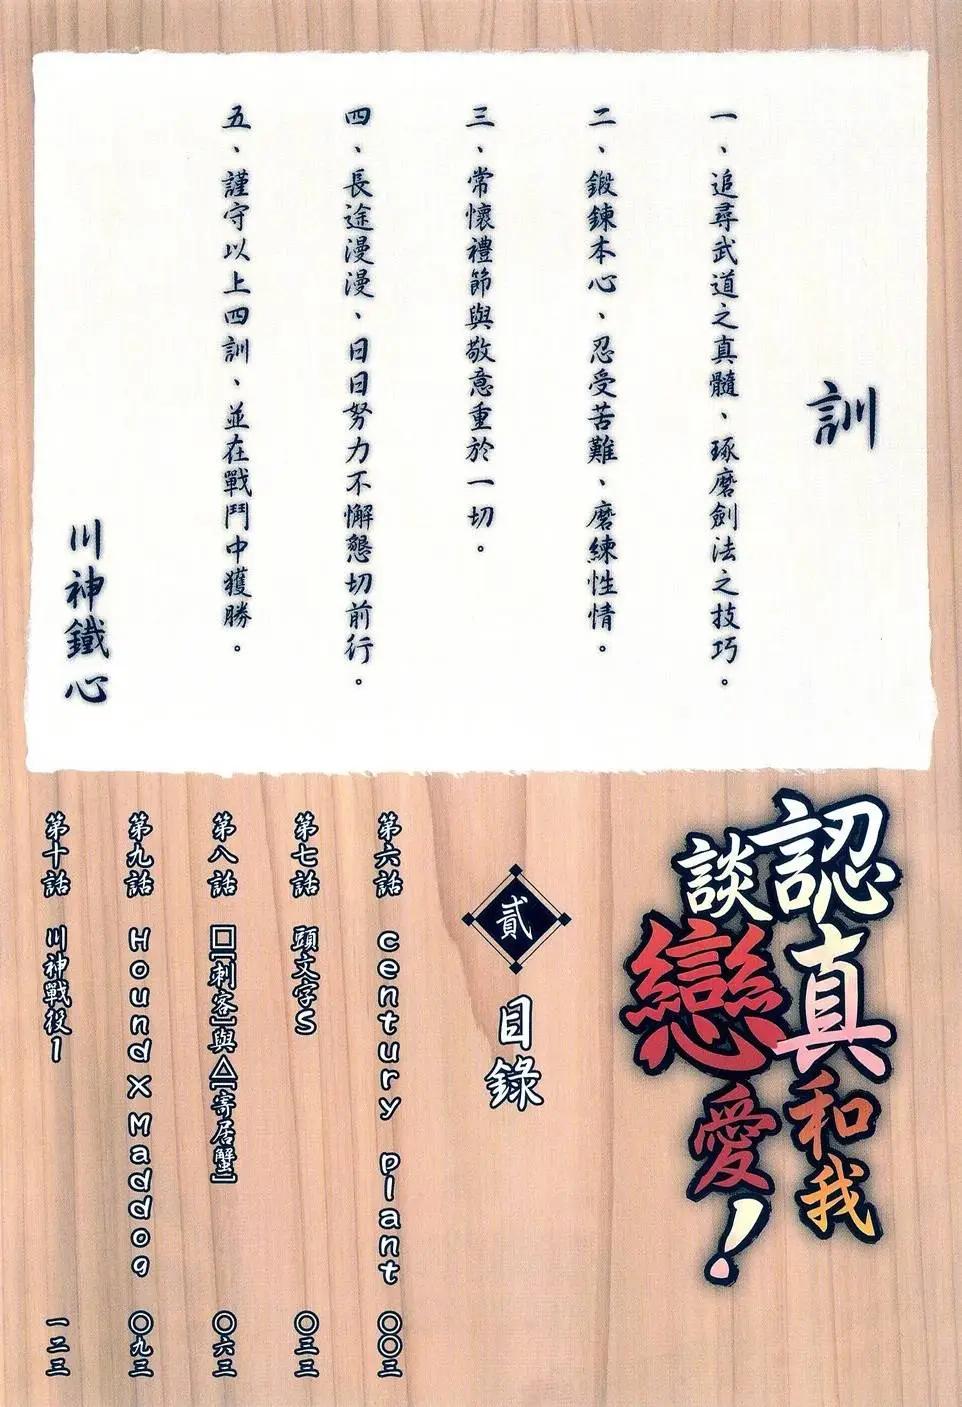 訓
一、追尋武道之真髓、琢磨劍法之技巧。
二、鍛鍊本心、忍受苦難、磨練性情。
三、常懷禮節與敬意重於一切。
四、長途漫漫、日日努力不懈懇切前行。
五、謹守以上四訓、並在戰鬥中獲勝。
川神鐵心
認真和我
談戀愛！
貳
目錄
第六話 century plant 〇〇三
第七話 頭文字S 〇三三
第八話 □[刺客]與△[寄居蟹] 〇六三
第九話 Hound X Maddog 〇九三
第十話 川神戰役1 一二三